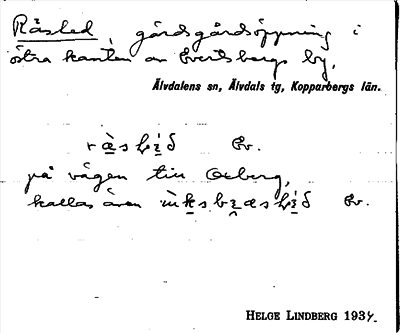 Råsled, gårdsgårdsöppning i
östra kanten av Evertsbergs by,
Älvdalens sn, Älvdals tg, Kopparbergs län.
Ev.
på vägen till Oxberg,
kallas även Ev.
HELGE LINDBERG 1937.